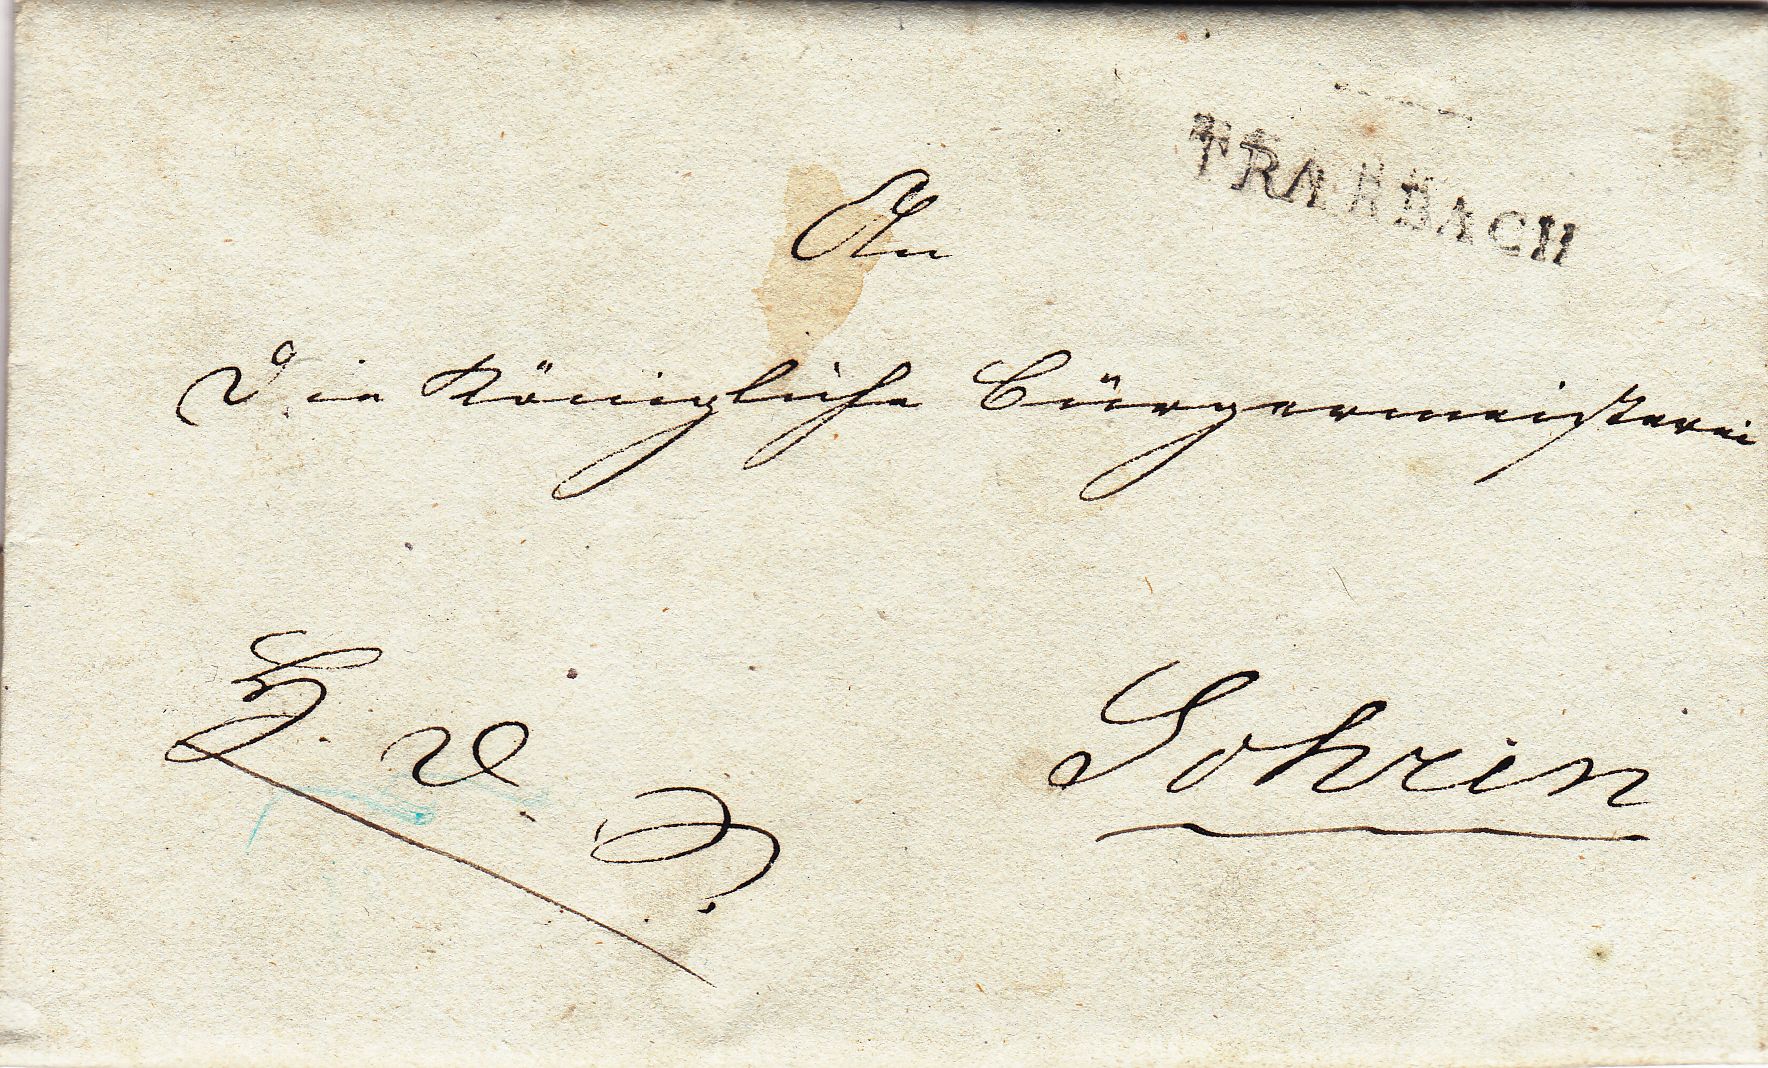 TRARBACH
An
Die Königliche Bürgermeisterei
H. D. S.
Sohren